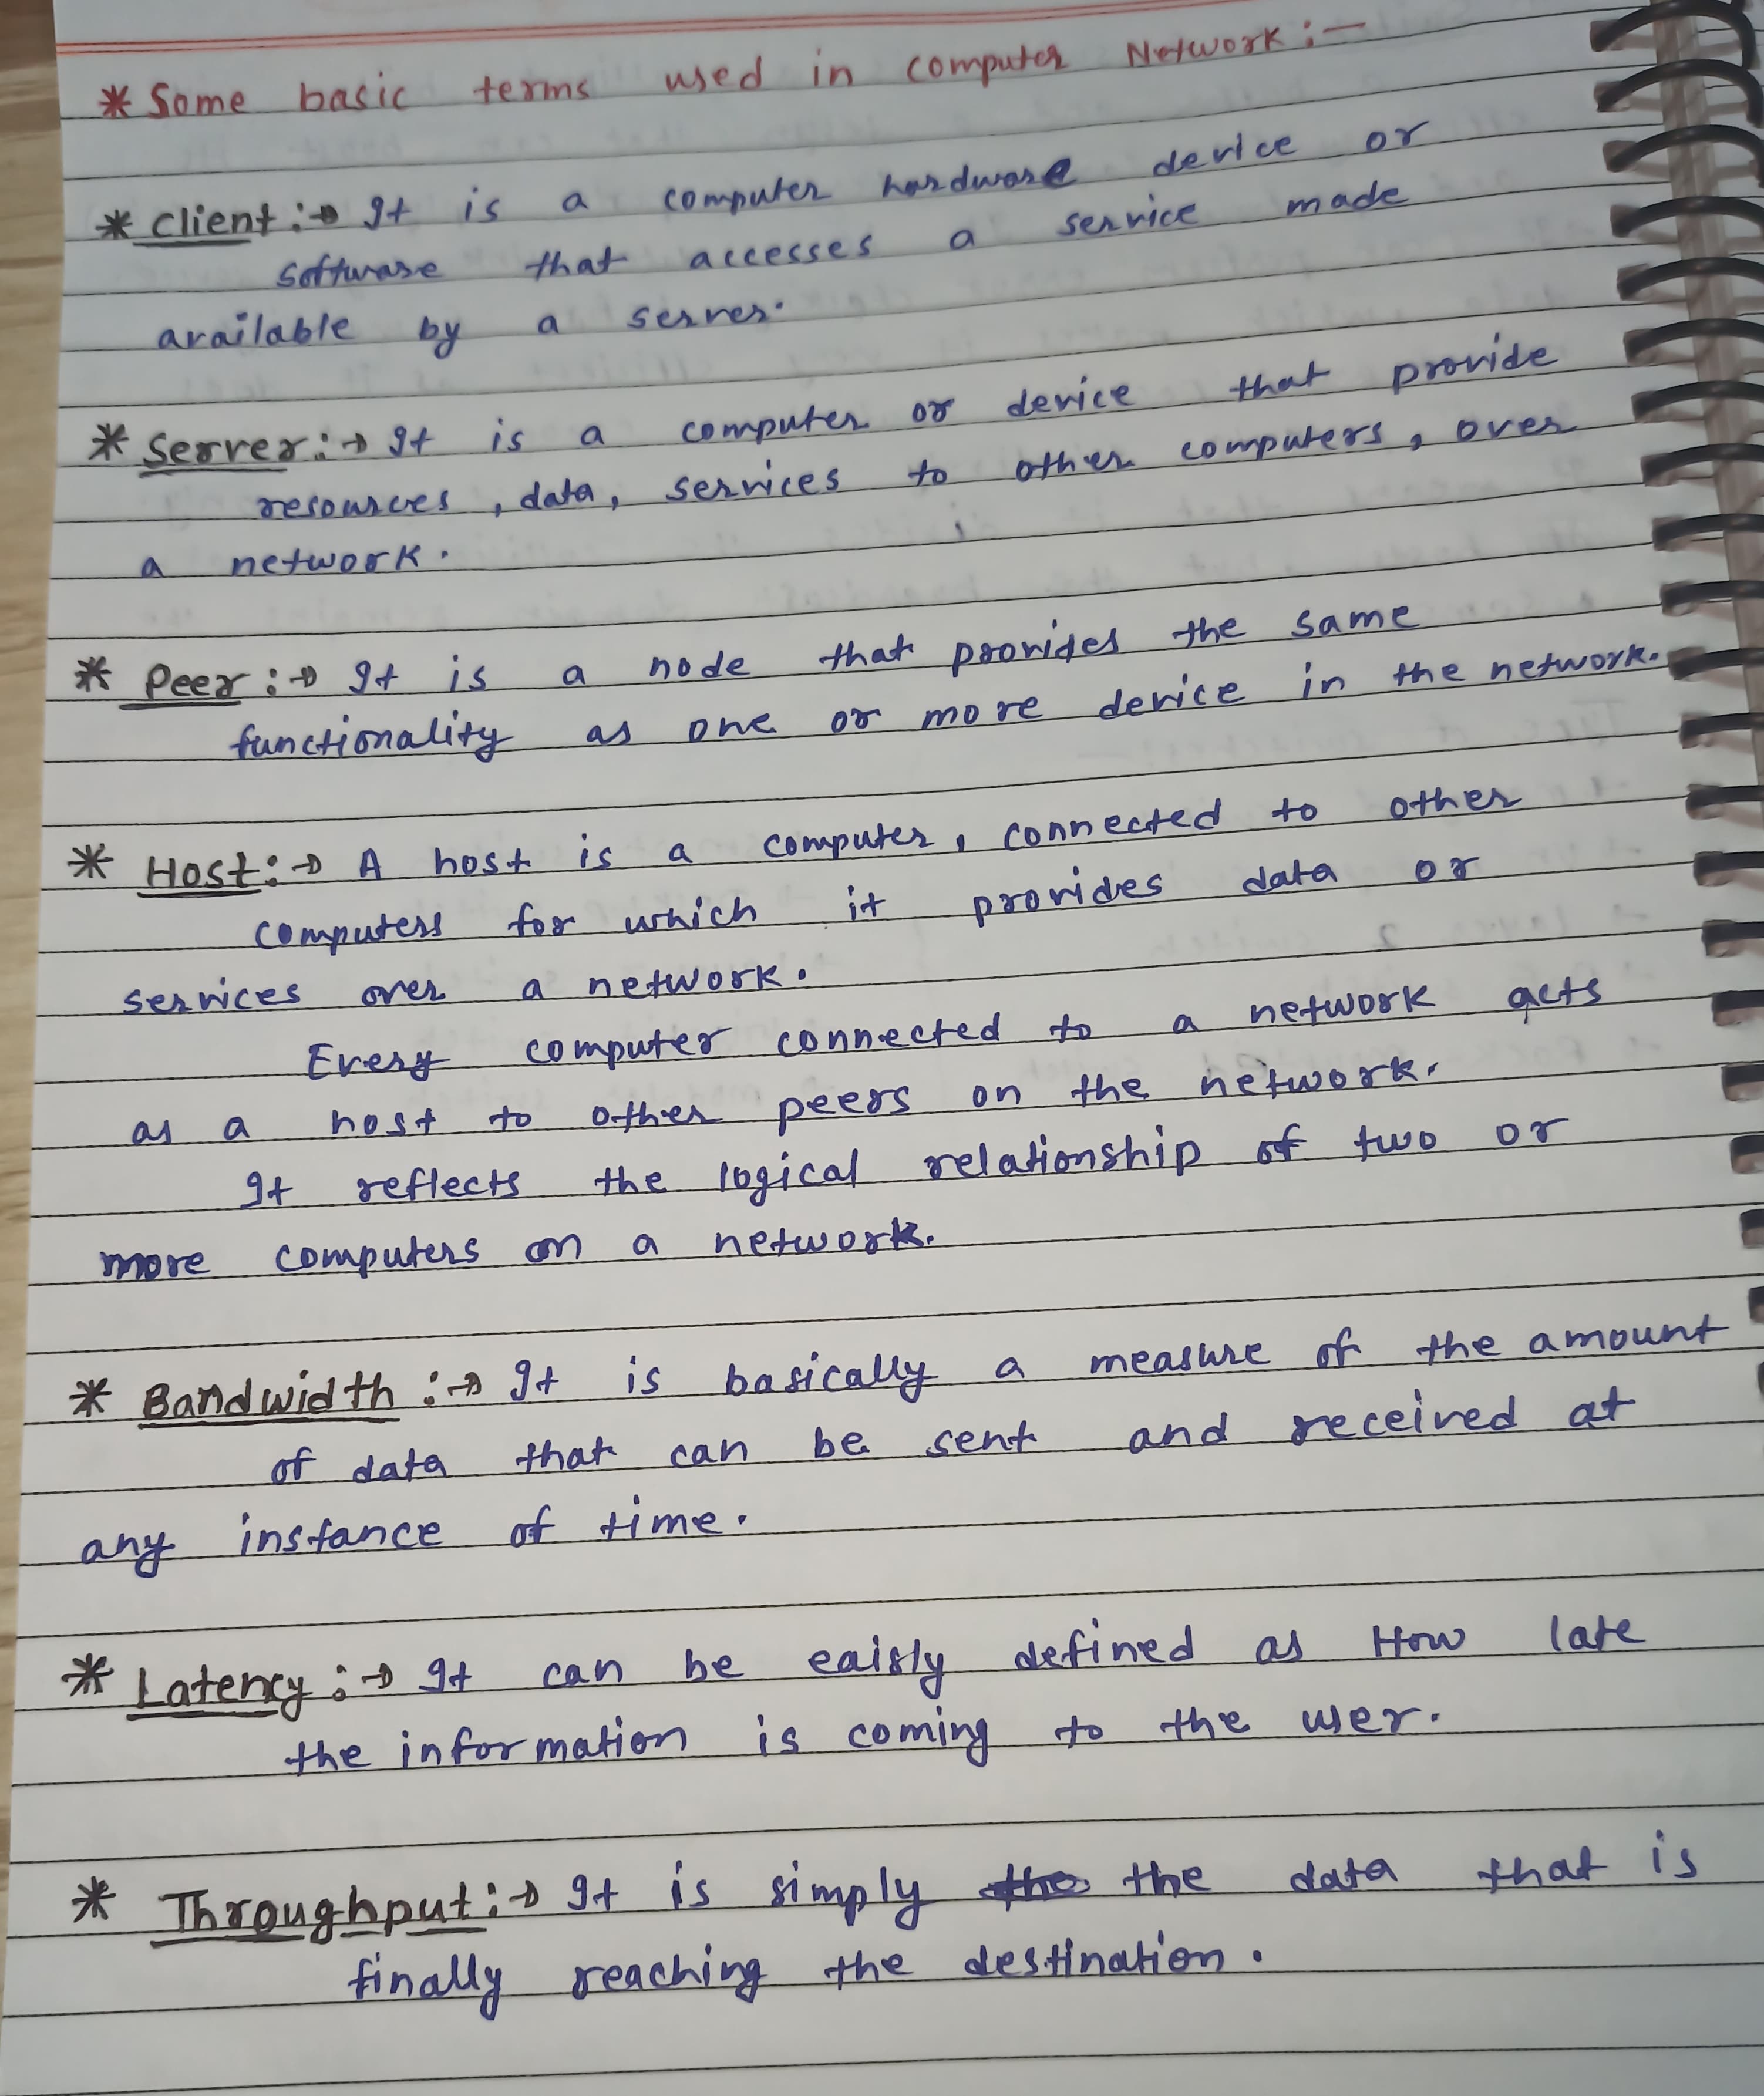 * Some basic terms used in computer Network :-
* Client :→ It is a computer hardware device or
software that accesses a service made
available by a server.
* Server :→ It is a computer or device that provide
resources, data, services to other computers, over
a network.
* Peer :→ It is a node that provides the same
functionality as one or more device in the network.
* Host :→ A host is a computer, connected to other
computers for which it provides data or
services over a network.
Every computer connected to a network acts
as a host to other peers on the network.
It reflects the logical relationship of two or
more computers on a network.
* Bandwidth :→ It is basically a measure of the amount
of data that can be sent and received at
any instance of time.
* Latency :→ It can be eaisly defined as How late
the information is coming to the user.
* Throughput :→ It is simply the the data that is
finally reaching the destination.